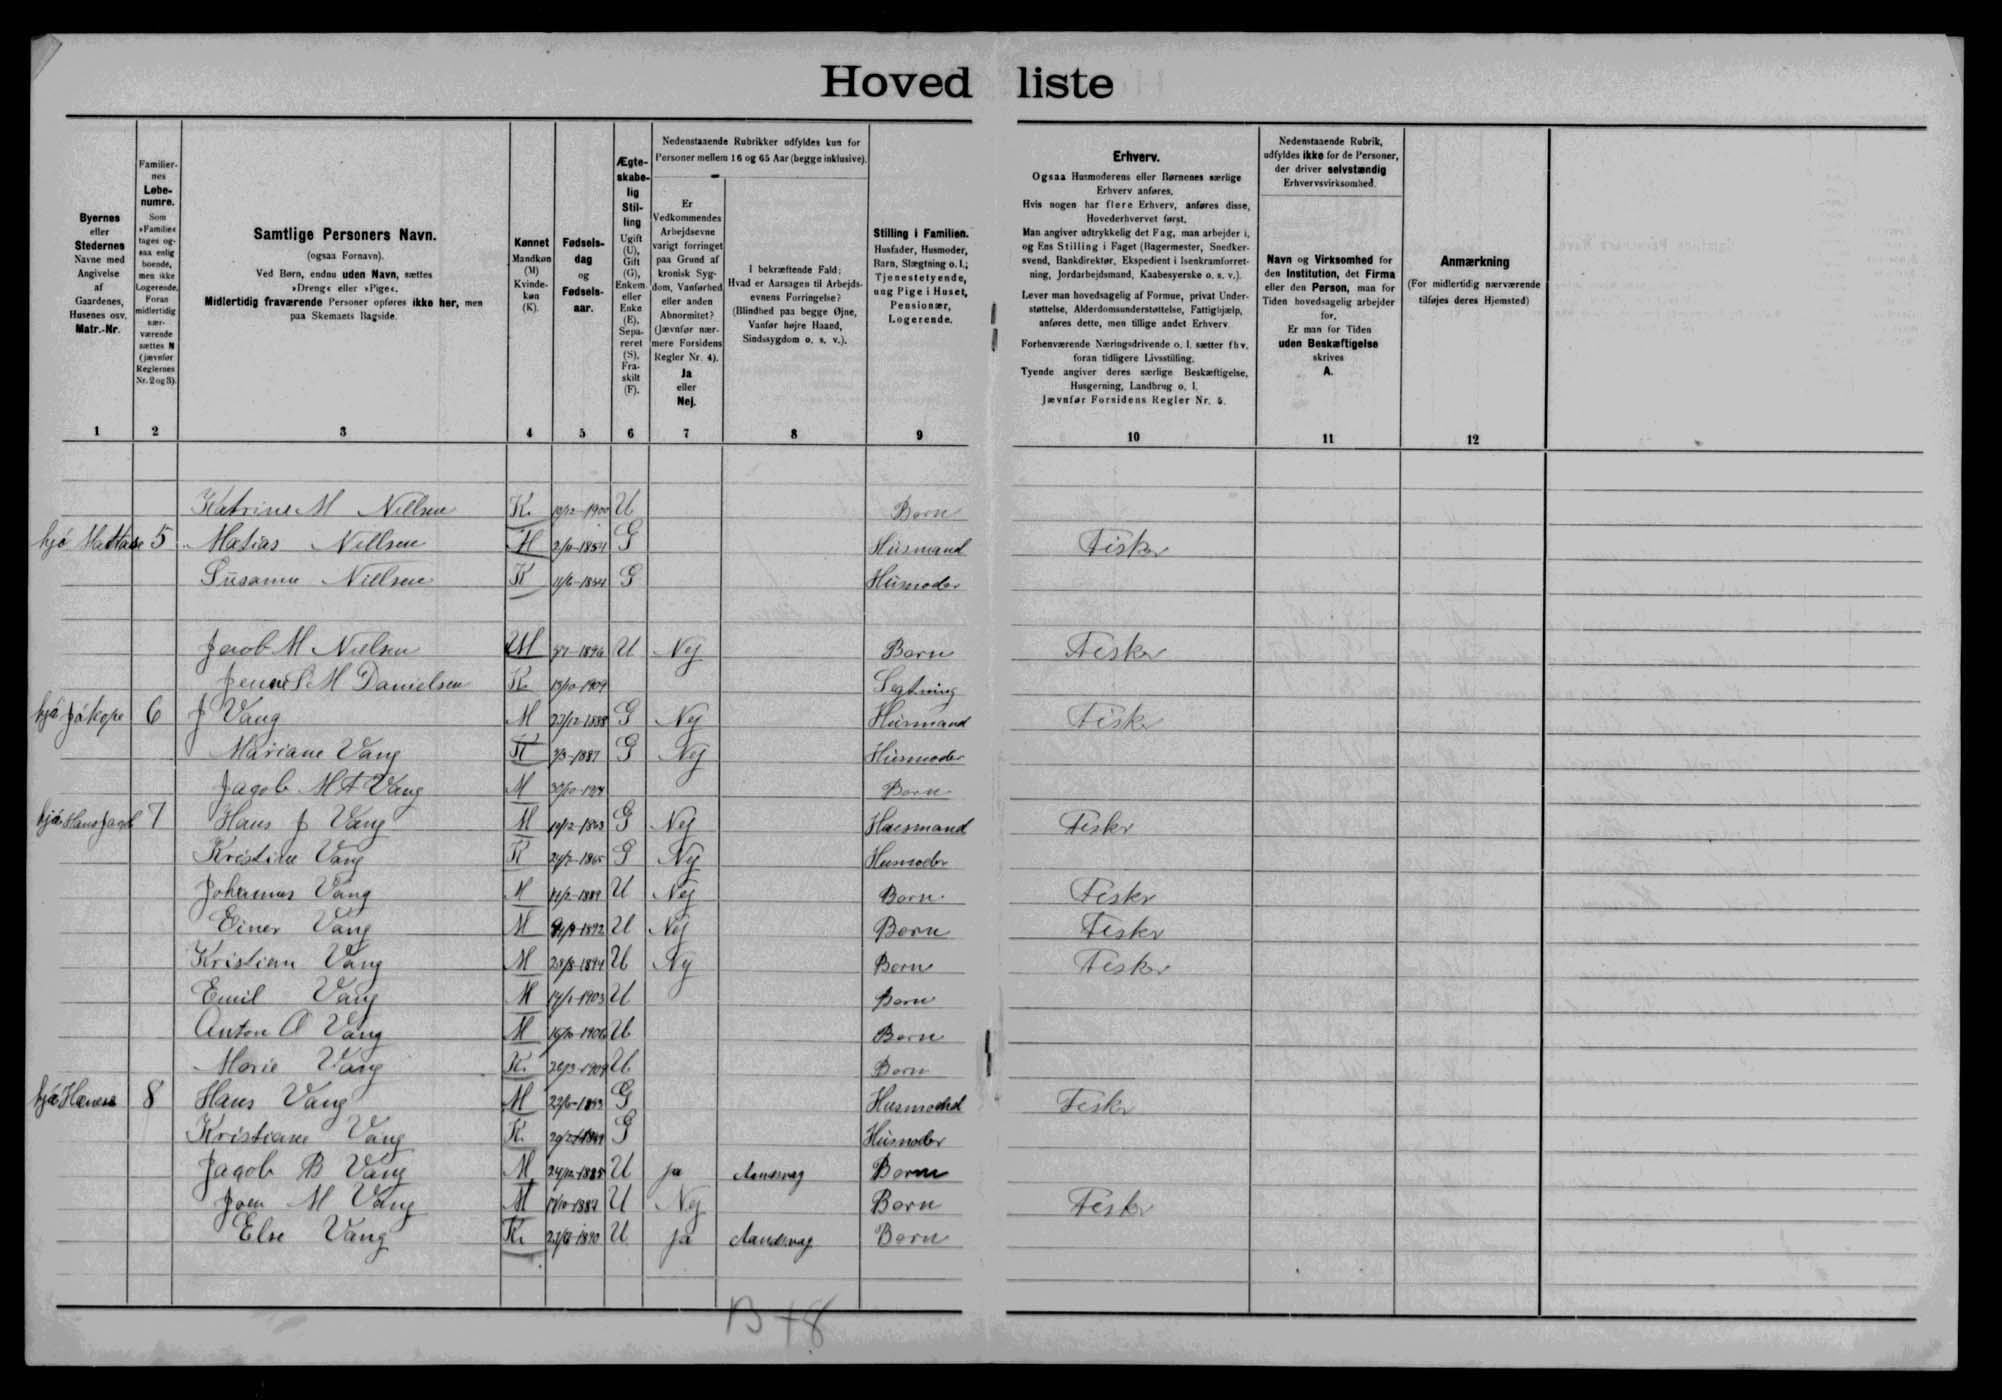 Hovedliste
Byernes
eller
Stedernes
Navne med
Angivelse
af
Gaardenes,
Husenes osv.
Matr.-Nr.
Familier-
nes
Løbe-
numre.
Som
»Familie«
tages og-
saa enlig
boende,
men ikke
Logerende.
Foran
midlertidig
nær-
værende
sættes N
(jævnfør
Reglernes
Nr. 2 og 3).
Samtlige Personers Navn.
(ogsaa Fornavn).
Ved Børn, endnu uden Navn, sættes
»Dreng« eller »Pige«.
Midlertidig fraværende Personer opføres ikke her, men
paa Skemaets Bagside.
Kønnet
Mandkøn
(M)
Kvinde-
køn
(K).
Fødsels-
dag
og
Fødsels-
aar.
Ægte-
skabe-
lig
Stil-
ling
Ugift
(U),
Gift
(G),
Enkem.
eller
Enke
(E),
Sepa-
reret
(S),
Fra-
skilt
(F).
Nedenstaaende Rubrikker udfyldes kun for
Personer mellem 16 og 65 Aar (begge inklusive).
Er
Vedkommendes
Arbejdsevne
varigt forringet
paa Grund af
kronisk Syg-
dom, Vanførhed
eller anden
Abnormitet?
(Jævnfør nær-
mere Forsidens
Regler Nr. 4).
Ja
eller
Nej.
I bekræftende Fald;
Hvad er Aarsagen til Arbejds-
evnens Forringelse?
(Blindhed paa begge Øjne,
Vanfør højre Haand,
Sindssygdom o. s. v.).
Stilling i Familien.
Husfader, Husmoder,
Barn, Slægtning o. l.;
Tjenestetyende,
ung Pige i Huset,
Pensionær,
Logerende.
Erhverv.
Ogsaa Husmoderens eller Børnenes særlige
Erhverv anføres.
Hvis nogen har flere Erhverv, anføres disse,
Hovederhvervet først.
Man angiver udtrykkelig det Fag, man arbejder i,
og Ens Stilling i Faget (Bagermester, Snedker-
svend, Bankdirektør, Ekspedient i Isenkramforret-
ning, Jordarbejdsmand, Kaabesyerske o. s. v.).
Lever man hovedsagelig af Formue, privat Under-
støttelse, Alderdomsunderstøttelse, Fattighjælp,
anføres dette, men tillige andet Erhverv.
Forhenværende Næringsdrivende o. l. sætter fhv.
foran tidligere Livsstilling.
Tyende angiver deres særlige Beskæftigelse,
Husgerning, Landbrug o. l.
Jævnfør Forsidens Regler Nr. 5.
Nedenstaaende Rubrik,
udfyldes ikke for de Personer,
der driver selvstændig
Erhvervsvirksomhed.
Navn og Virksomhed for
den Institution, det Firma
eller den Person, man for
Tiden hovedsagelig arbejder
for.
Er man for Tiden
uden Beskæftigelse
skrives
A.
Anmærkning
(For midlertidig nærværende
tilføjes deres Hjemsted)
1 2 3 4 5 6 7 8 9 10 11 12
Katrine M Nillsen K. 1900 U Barn
hjá 5 Matias Nillsen M 1854 G Husmand Fisker
Susanne Nielsen K 11/6-1844 G Husmoder
Jacob M Nielsen M 1896 U Nej Barn Fisker
M Danielsen K. 1909 Slegtning
hjá Jákope 6 J Vang M 23/12-1888 G Nej Husmand Fisker
Mariane Vang K 1887 G Nej Husmoder
Jagob M A Vang M Barn
hjá Hans Jagob 7 Hans J Vang M 1863 G Nej Husmand Fisker
Kristine Vang K 1865 G Nej Husmoder
Johannus Vang M 1889 U Nej Barn Fisker
Einer Vang M 1892 U Nej Barn Fisker
Kristian Vang M 28/8-1894 U Nej Barn Fisker
Emil Vang M 1903 U Barn
Anton A Vang M 16/10-1906 U Barn
Marie Vang K. 1909 U Barn
hjá 8 Hans Vang M 1853 G Husmand Fisker
Kristiane Vang K. G Husmoder
Jagob B Vang M 24/12-1885 U ja Aandsvag Barn
Joen M Vang M U Nej Barn Fisker
Else Vang K. 1890 U ja Aandsvag Barn